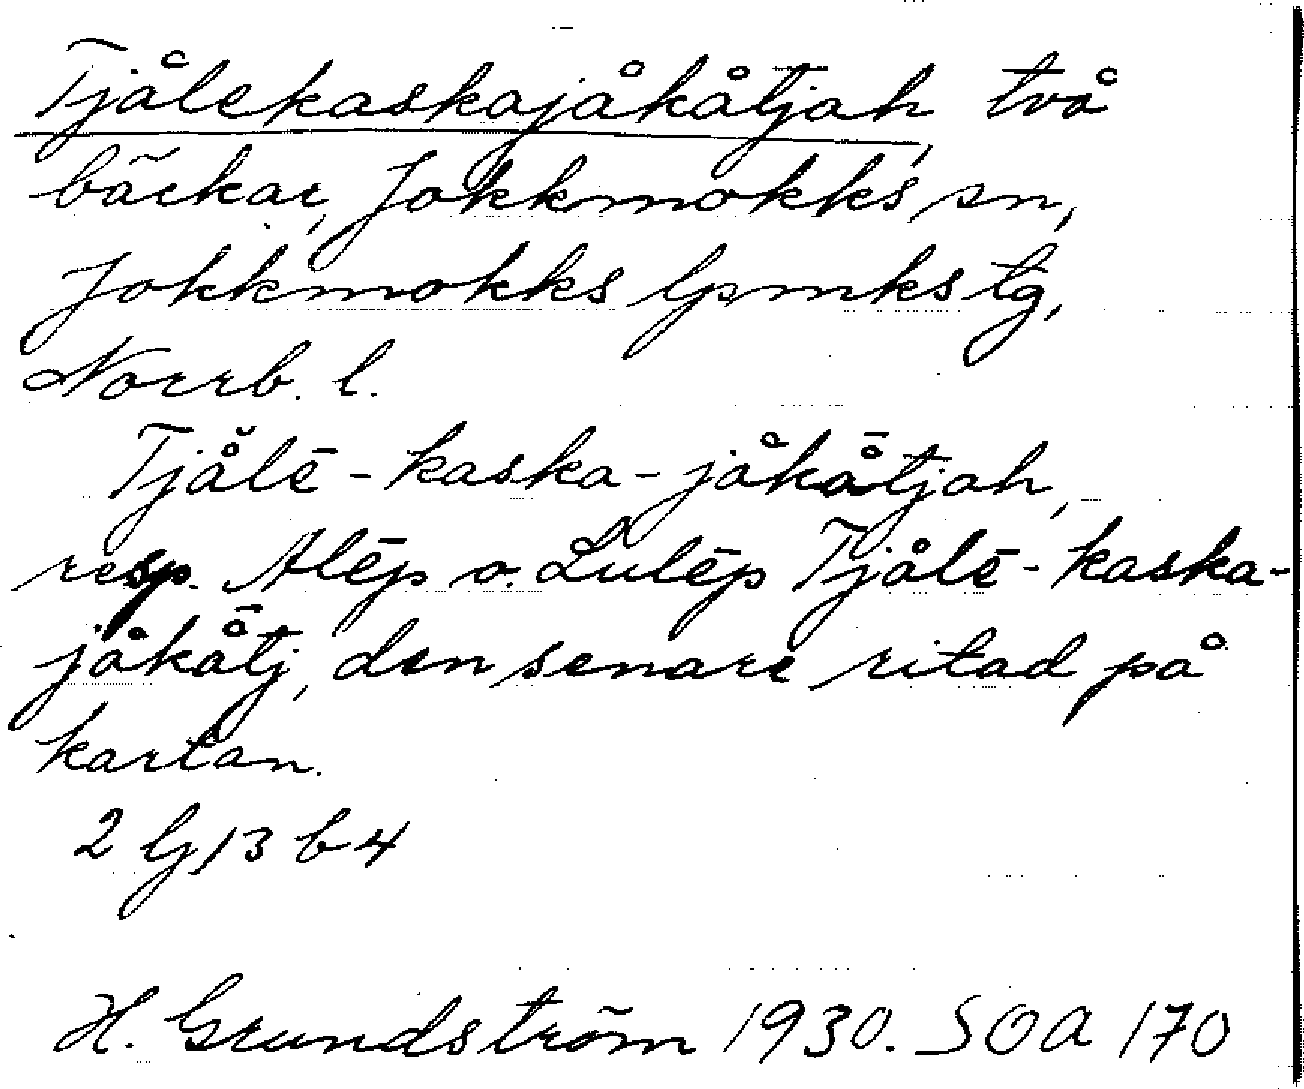 Tjålekaskajåkåtjah, två
bäckar, Jokkmokks sn,
Jokkmokks lpmks tg,
Norrb. l.
Tjålē-kaska-jåkå̄tjah,
resp. Alēp o. Lulēp Tjålē-kaska-
jåkå̄tj, den senare ritad på
kartan.
2 Gj 13 b 4
H. Grundström 1930. SOA 170